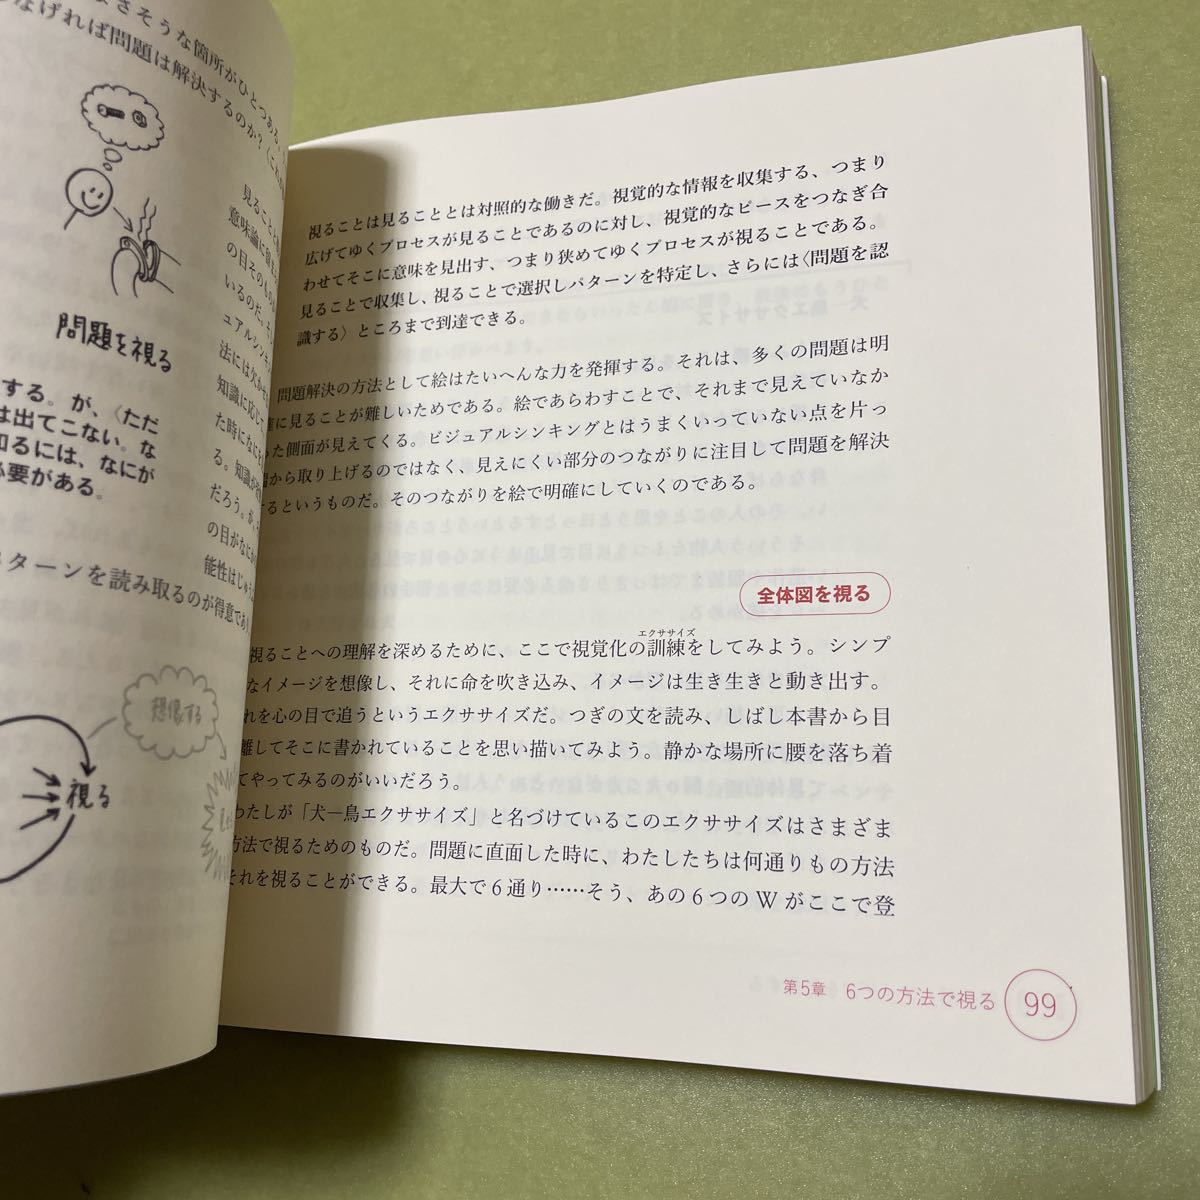 まさそうな箇所がひとつある
なげれば問題は解決するのか?
問題を視る
する。が、〈ただ
は出てこない。な
知るには、なにが
必要がある。
見ることと
意味論に
の目そのもの
いるのだ。そ
ュアルシンキン
法には欠かせ
知識に応じて
た時になに
る。知識が
だろう。が、そ
の目がなにか
能性はじゅう
ターンを読み取るのが得意であ
想像する
視る
視ることは見ることとは対照的な働きだ。視覚的な情報を収集する、つまり
広げてゆくプロセスが見ることであるのに対し、視覚的なピースをつなぎ合
わせてそこに意味を見出す、つまり狭めてゆくプロセスが視ることである。
見ることで収集し、視ることで選択しパターンを特定し、さらには〈問題を認
識する〉ところまで到達できる。
問題解決の方法として絵はたいへんな力を発揮する。それは、多くの問題は明
確に見ることが難しいためである。絵であらわすことで、それまで見えていなか
った側面が見えてくる。ビジュアルシンキングとはうまくいっていない点を片っ
端から取り上げるのではなく、見えにくい部分のつながりに注目して問題を解決
するというものだ。そのつながりを絵で明確にしていくのである。
全体図を視る
エクササイズ
視ることへの理解を深めるために、ここで視覚化の訓練をしてみよう。シンプ
なイメージを想像し、それに命を吹き込み、イメージは生き生きと動き出す。
れを心の目で追うというエクササイズだ。つぎの文を読み、しばし本書から目
離してそこに書かれていることを思い描いてみよう。静かな場所に腰を落ち着
てやってみるのがいいだろう。
わたしが「犬—鳥エクササイズ」と名づけているこのエクササイズはさまざま
方法で視るためのものだ。問題に直面した時に、わたしたちは何通りもの方法
それを視ることができる。最大で6通り……そう、あの6つのWがここで登
第5章 6つの方法で視る 99